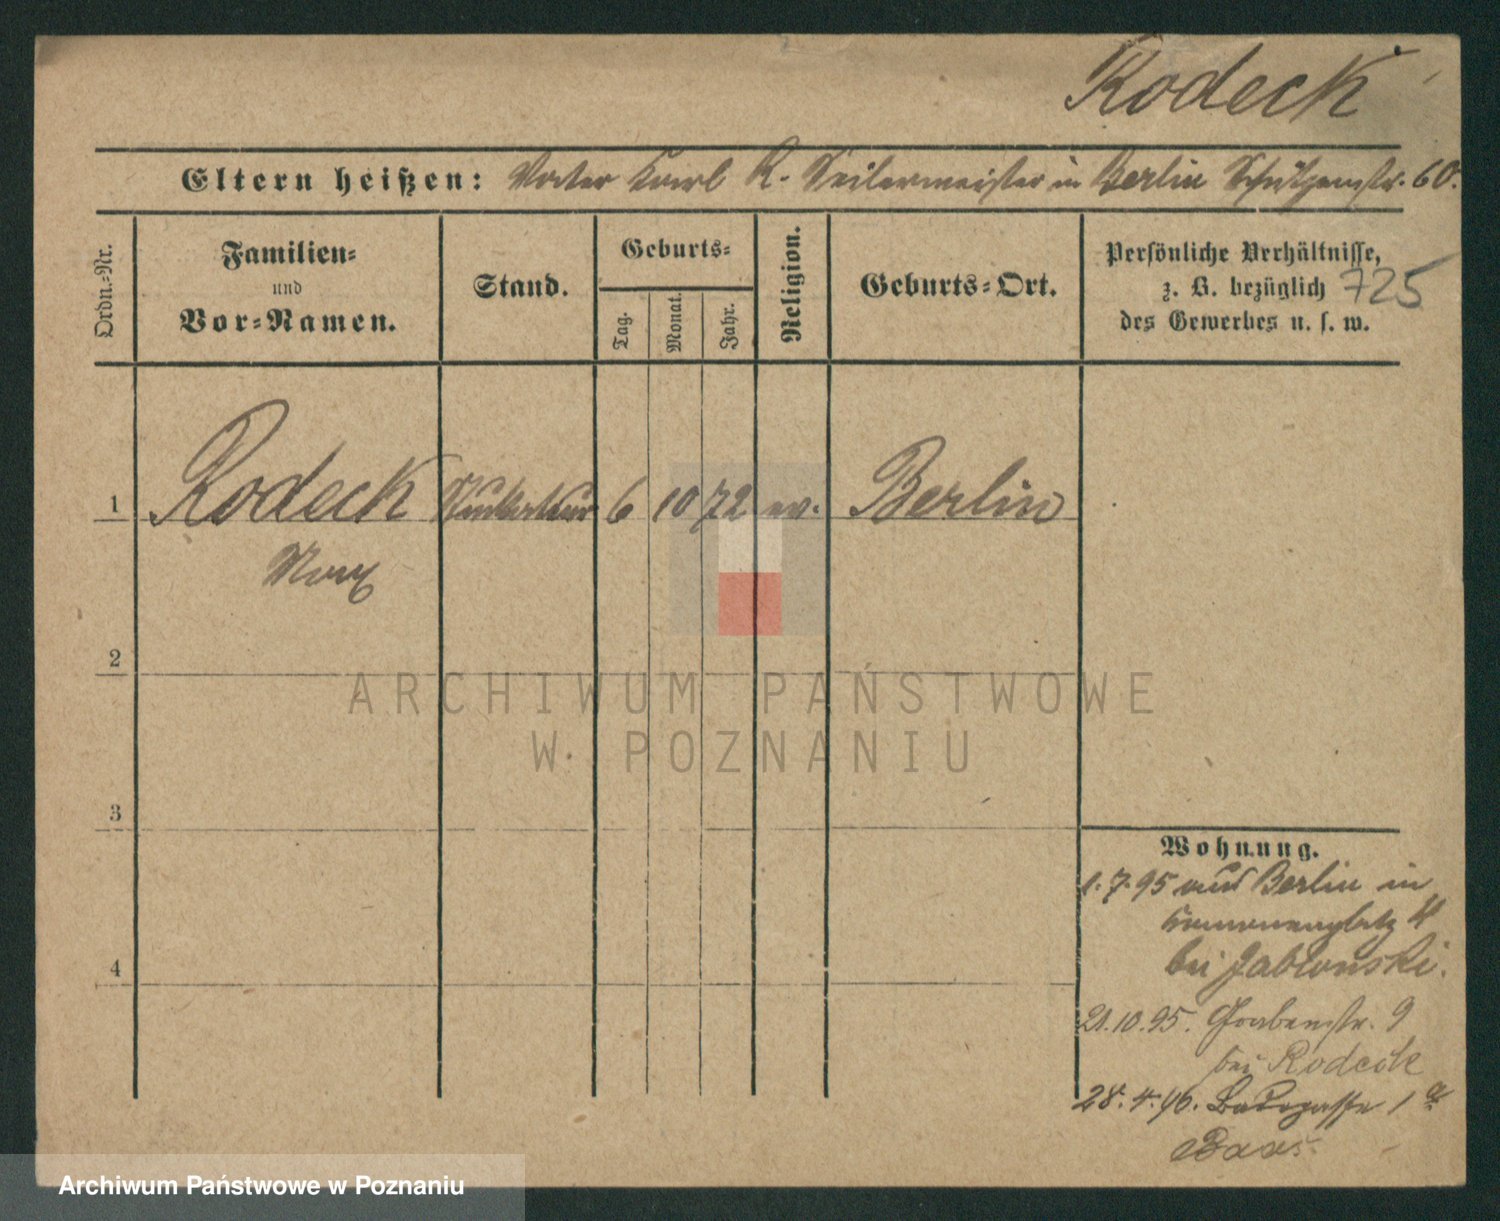 Rodeck
Eltern heißen: Vater Karl R. Seilermeister in Berlin Schützenstr. 60.
Ordn.-Nr.
Familien-
und
Vor-Namen.
Stand.
Geburts-
Tag.
Monat.
Jahr.
Religion.
Geburts-Ort.
Persönliche Verhältnisse,
z. B. bezüglich 725
des Gewerbes u. s. w.
1 Rodeck 6 10 72 ev. Berlin
Max
2
ARCHIWUM PAŃSTWOWE
W POZNANIU
3
Wohnung.
1.7.95 aus Berlin in
4
bei Jablonski.
4
21.10.95. Grabenstr. 9
bei Rodeck
28.4.96. Badegasse 1a
Archiwum Państwowe w Poznaniu